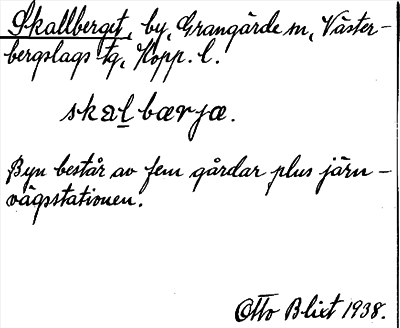 Skallberget, by, Grangärde sn, Väster-
bergslags tg, Kopp. l.
skalbærjæ.
Byn består av fem gårdar plus järn-
vägsstationen.
Otto Blixt 1938.